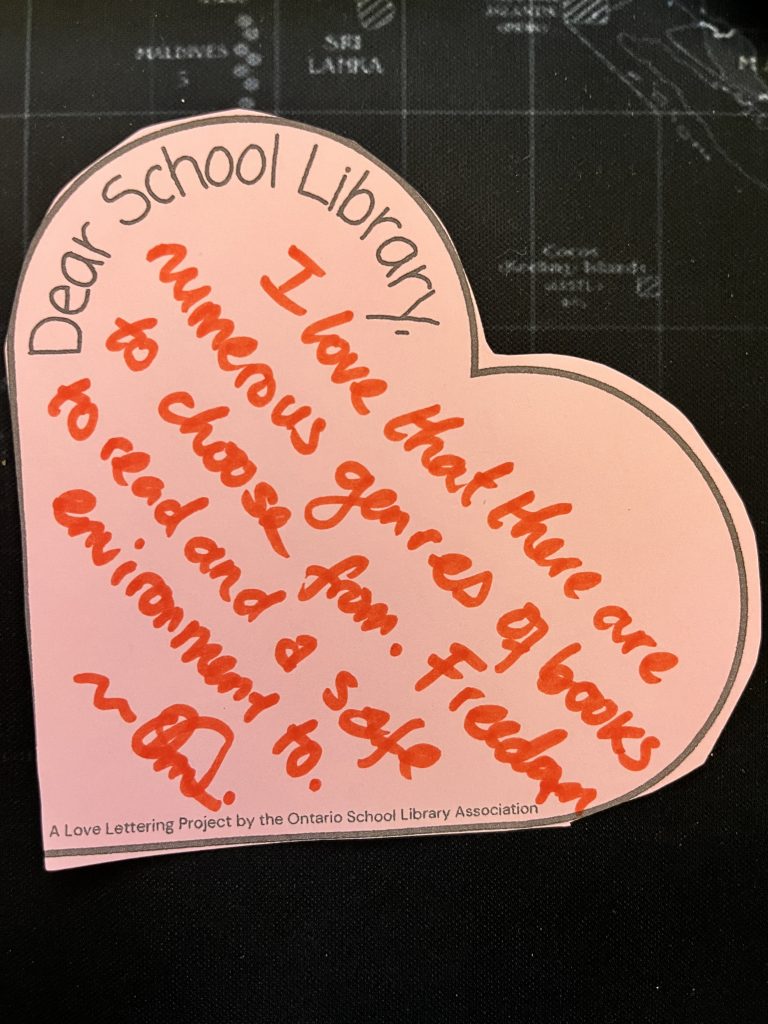 MALDIVES
5
SRI
LANKA
Cocos
(Keeling) Islands
Dear School Library,
I love that there are
numerous genres of books
to choose from. Freedom
to read and a safe
environment to.
A Love Lettering Project by the Ontario School Library Association